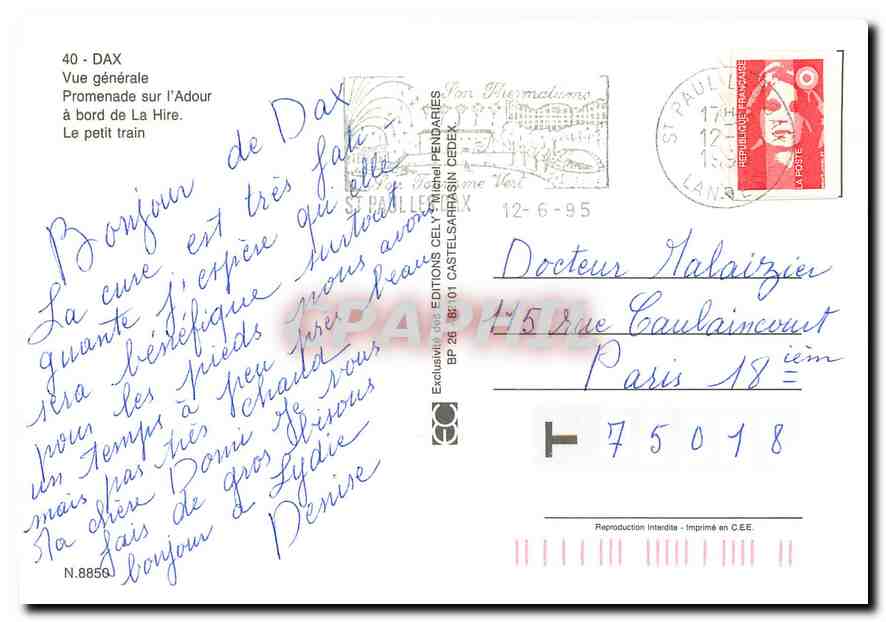 40 - DAX
Vue générale
Promenade sur l'Adour
à bord de La Hire.
Le petit train
Bonjour de Dax
La cure est très fati-
guante j'espère qu'elle
sera bénéfique surtout
pour les pieds nous avons
un temps à peu près beau
mais pas très chaud
Ma chère Domi je vous
fais de gros bisous
bonjour à Lydie
Denise
N.8850
Son Thermalisme
Son Tourisme Vert
ST PAUL LES DAX
12-6-95
Exclusivité des EDITIONS CELY Michel PENDARIES
BP 26 - 82101 CASTELSARRASIN CEDEX.
EC
CPAPHIL
ST PAUL L
17H
12-
199
LANDES
REPUBLIQUE FRANÇAISE
LA POSTE
Docteur Malaizier
175 rue Caulaincourt
Paris 18 ièm
75018
Reproduction Interdite - Imprimé en C.E.E.